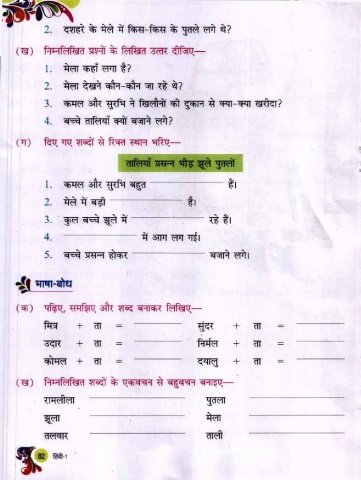 2. दशहरे के मेले में किस-किस के पुतले लगे थे?
(ख) निम्नलिखित प्रश्नों के लिखित उत्तर दीजिए—
1. मेला कहाँ लगा है?
2. मेला देखने कौन-कौन जा रहे थे?
3. कमल और सुरभि ने खिलौनों की दुकान से क्या-क्या खरीदा?
4. बच्चे तालियाँ क्यों बजाने लगे?
(ग) दिए गए शब्दों से रिक्त स्थान भरिए—
तालियाँ प्रसन्न भीड़ झूले पुतलों
1. कमल और सुरभि बहुत ___ हैं।
2. मेले में बड़ी ___ है।
3. कुल बच्चे झूले में ___ रहे हैं।
4. ___ में आग लग गई।
5. बच्चे प्रसन्न होकर ___ बजाने लगे।
भाषा-बोध
(क) पढ़िए, समझिए और शब्द बनाकर लिखिए—
मित्र + ता = ___ सुंदर + ता = ___
उदार + ता = ___ निर्मल + ता = ___
कोमल + ता = ___ दयालु + ता = ___
(ख) निम्नलिखित शब्दों के एकवचन से बहुवचन बनाइए—
रामलीला ___ पुतला ___
झूला ___ मेला ___
तलवार ___ ताली ___
82 हिंदी-1